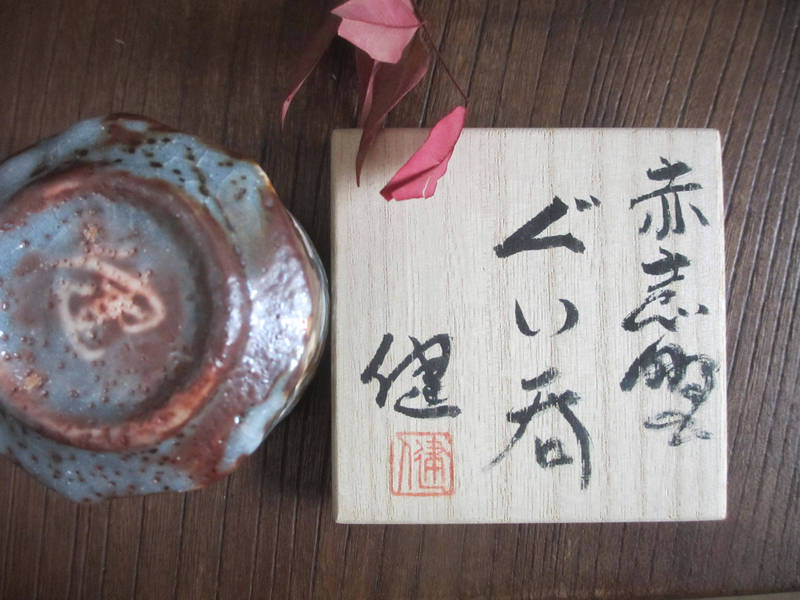 赤志野
ぐい呑
健
健